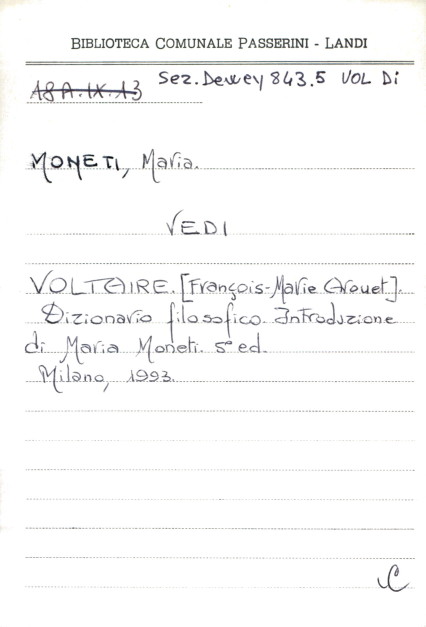 BIBLIOTECA COMUNALE PASSERINI - LANDI
18A.IX.13 Sez. Dewey 843.5 VOL Di
MONETI, Maria.
VEDI
VOLTAIRE. [François-Marie Arouet].
Dizionario filosofico. Introduzione
di Maria Moneti. 5ª ed.
Milano, 1993.
C